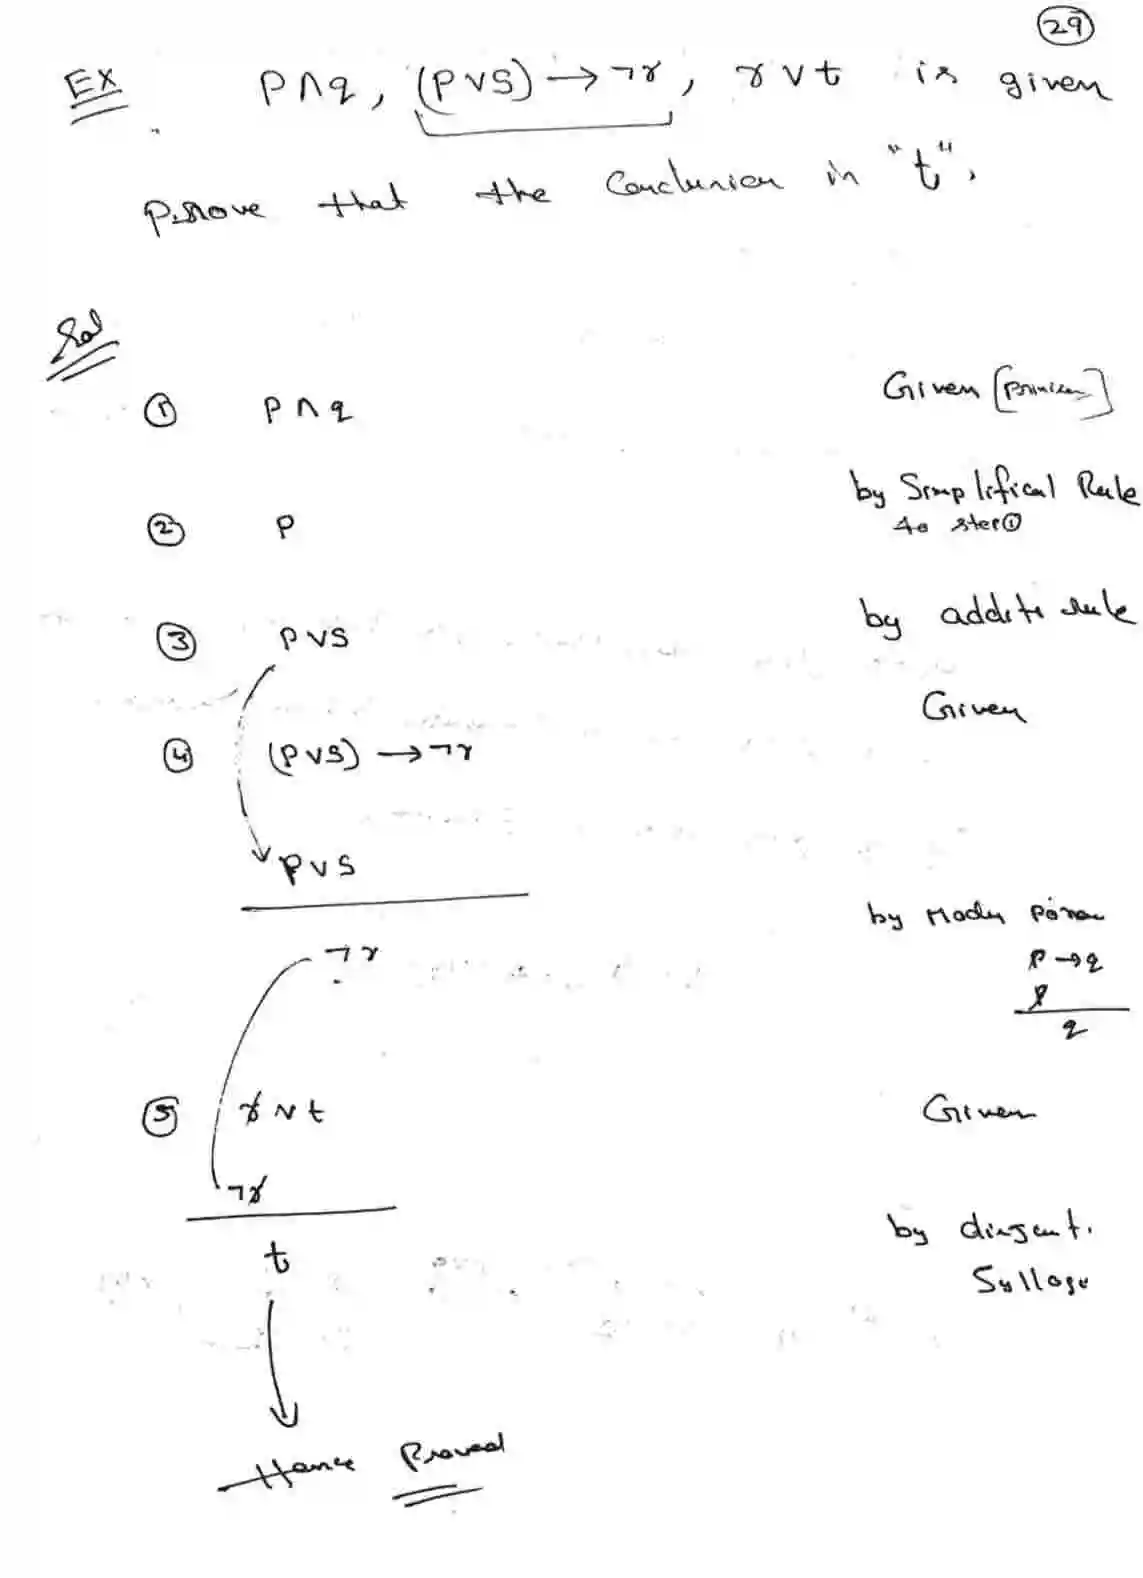 29
Ex p∧q, (p∨s)→¬r, r∨t is given
Prove that the Conclusion is "t".
Sol
① p∧q Given [Primises]
② p by Simplifical Rule
to step①
③ p∨s by additi rule
④ (p∨s)→¬r Given
p∨s
¬r by Modus Ponen
p→q
p
q
⑤ r∨t Given
¬r
t by disjunt.
Sylloge
Hence Proved